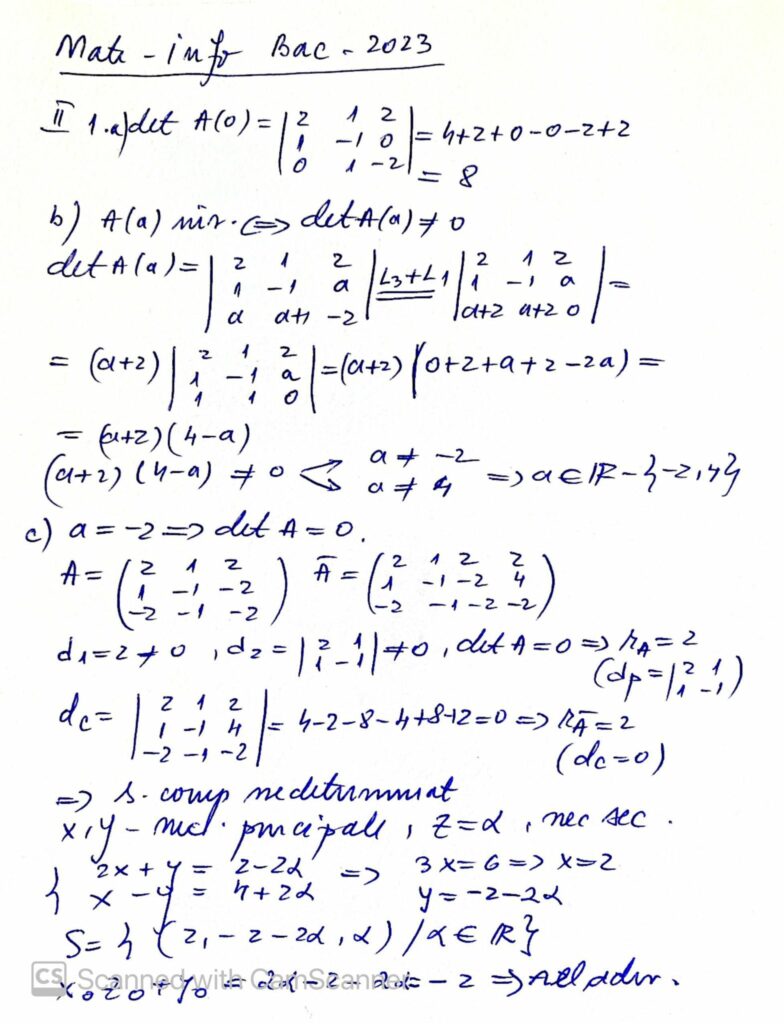 Mate - info Bac - 2023
II 1.a) det A(0) = |2 1 2; 1 -1 0; 0 1 -2| = 4+2+0-0-2+2
= 8
b) A(a) inv. <=> det A(a) ≠ 0
det A(a) = |2 1 2; 1 -1 a; a a+1 -2| L3+L1 |2 1 2; 1 -1 a; a+2 a+2 0| =
= (a+2) |2 1 2; 1 -1 a; 1 1 0| = (a+2) (0+2+a+2-2a) =
= (a+2)(4-a)
(a+2)(4-a) ≠ 0 < a ≠ -2 a ≠ 4 => a ∈ IR - {-2,4}
c) a = -2 => det A = 0.
A = (2 1 2; 1 -1 -2; -2 -1 -2) Ā = (2 1 2 2; 1 -1 -2 4; -2 -1 -2 -2)
d1 = 2 ≠ 0, d2 = |2 1; 1 -1| ≠ 0, det A = 0 => rA = 2
(dp = |2 1; 1 -1|)
dc = |2 1 2; 1 -1 4; -2 -1 -2| = 4-2-8-4+8+2=0 => rĀ = 2
(dc=0)
=> s. comp nedeterminat
x, y - nec. principale, z = α, nec sec.
{ 2x + y = 2-2α => 3x = 6 => x=2
x - y = 4+2α y = -2-2α
S = { (2, -2-2α, α) / α ∈ IR}
CS Scanned with CamScanner
x0z0 + y0 = 2α - 2 - 2α = -2 => rel adev.